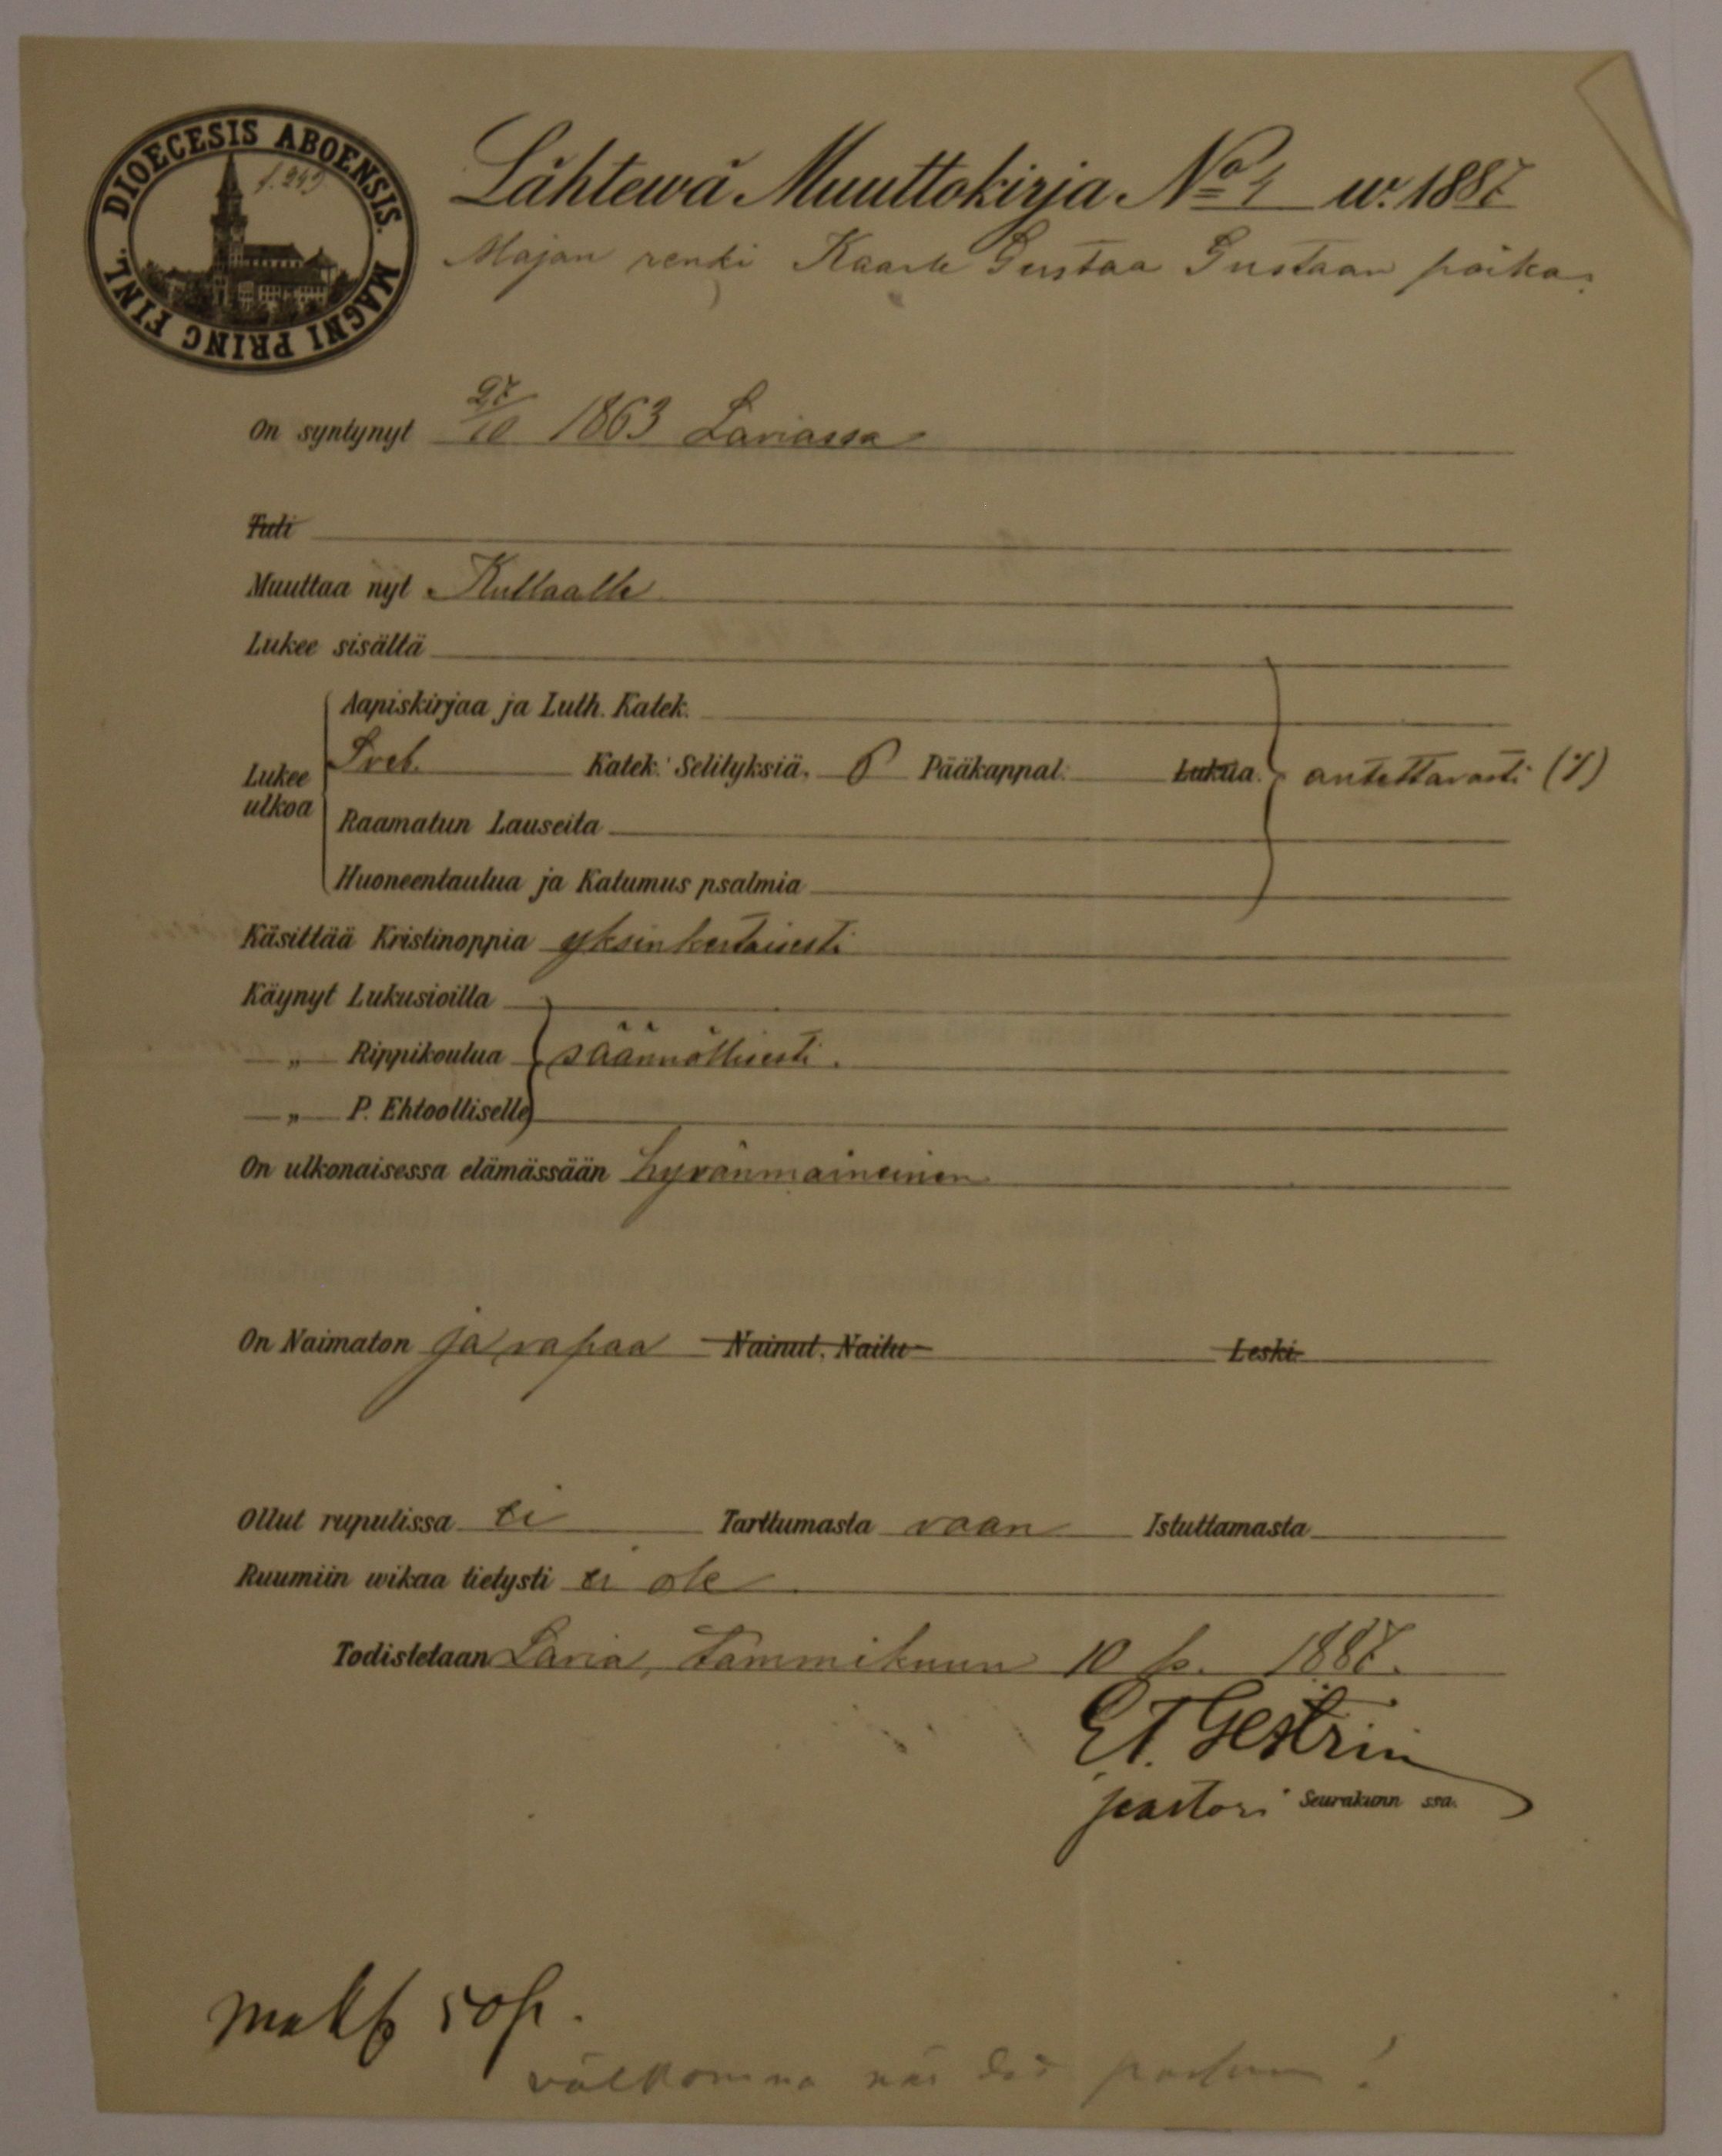 DIOECESIS ABOENSIS. MAGNI PRINC FINL.
f. 249
Lähtewä Muuttokirja No 4 w. 1887
Majan renki Kaarle Gustaa Gustaan poika.
On syntynyt 27/10 1863 Laviassa
Tuli
Muuttaa nyt Kullaalle
Lukee sisältä
Aapiskirjaa ja Luth. Katek.
Lukee ulkoa Sveb. Katek. Selityksiä, 6 Pääkappal. Lukua. antettavasti (/)
Raamatun Lauseita
Huoneentaulua ja Katumus psalmia
Käsittää Kristinoppia yksinkertaisesti
Käynyt Lukusioilla
„ Rippikoulua säännöllisesti.
„ P. Ehtoolliselle
On ulkonaisessa elämässään hyvänmaineinen
On Naimaton ja vapaa Nainut, Naitu Leski.
Ollut rupulissa ei Tarttumasta vaan Istuttamasta
Ruumiin wikaa tietysti ei ole
Todistetaan Lavia, Tammikuun 10 p. 1887.
E. T. Gestrin
pastori Seurakunn ssa.
50 p.
välkomna när det